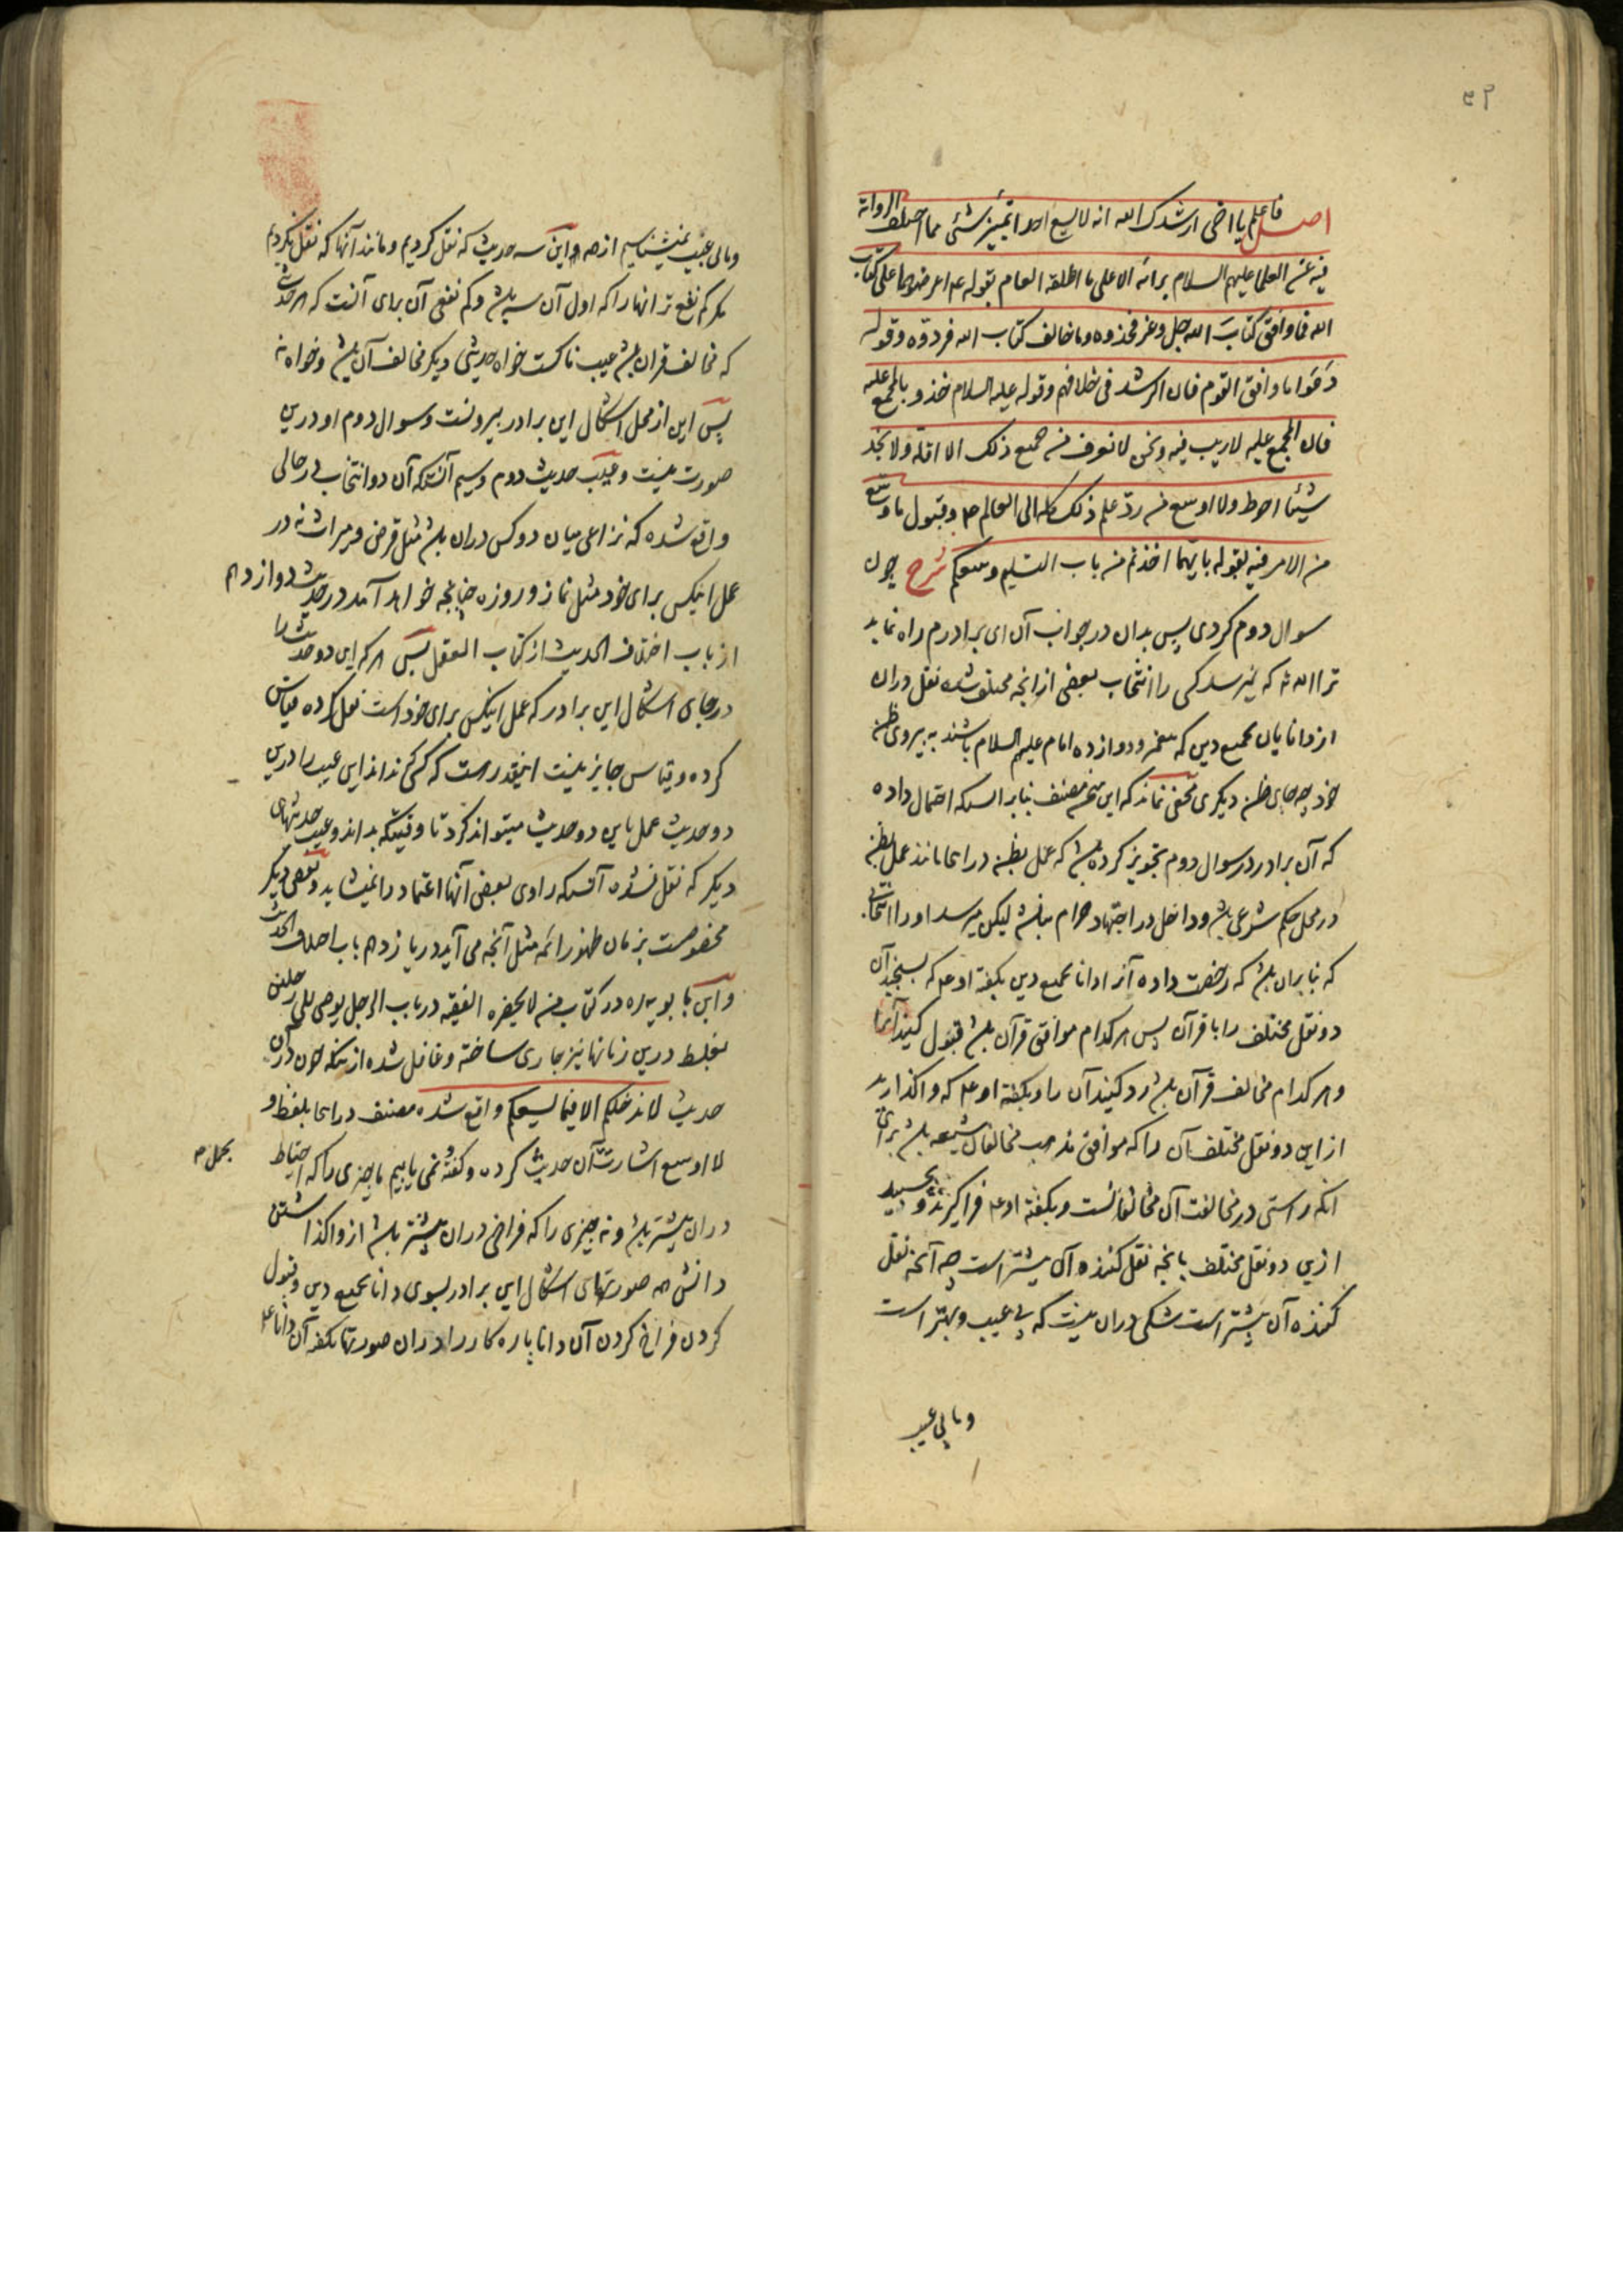 اصل فاعلم یا اخی ارشدک الله انه لا یسع احدا تمییز شئی مما اختلف الروایة
فیه عن العلما علیهم السلام برائه الا علی ما اطلقه العالم بقوله ع اعرضوهما علی کتاب
الله فما وافق کتاب الله جل وعز فخذوه وما خالف کتاب الله فردوه وقوله
دعوا ما وافق القوم فان الرشد فی خلافهم وقوله علیه السلام خذوا بالمجمع علیه
فان المجمع علیه لا ریب فیه ونحن لا نعرف من جمیع ذلک الا اقله ولا نجد
شیئا احوط ولا اوسع من رد علم ذلک کله الی العالم ع وقبول ما وسع
من الامر فیه بقوله بایهما اخذتم من باب التسلیم وسعکم شرح چون
سوال دوم کردی پس بدان در جواب آن ای برادرم راه نماید
ترا الله که نمیرسد کسی را انتخاب بعضی از آنچه مختلف شده نقل دران
از دانایان بجمیع دین که پیغمبر و دوازده امام علیهم السلام باشند به پیروی ظن
خود چه جای ظن دیگری مخفی نماند که این سخن مصنف بنابر انست که احتمال داده
که آن برادر در سوال دوم تجویز کرده باشد که عمل بظن در اینجا مانند عمل بظن
در محل حکم شرعی باشد و داخل در اجتهاد حرام نباشد لیکن میرسد او را انتخاب
که بنا بران باشد که رخصت داده آنرا دانا بجمیع دین بگفته او ع که بسنجید آن
دو نقل مختلف را با قرآن پس هر کدام موافق قرآن باشد قبول کنید آنرا
و هر کدام مخالف قرآن باشد رد کنید آن را و بگفته او ع که واگذارید
از این دو نقل مختلف آن را که موافق مذهب مخالفان شیعه باشد برای
انکه راستی در مخالفت آن مخالفانست و بگفته او ع فراگیرید و بچسبید
ازین دو نقل مختلف بانچه نقل کننده آن بیشتر است چه آنچه نقل
کننده آن بیشتر است شکی دران نیست که بی عیب و بهتر است
وما بی عیب
وما بی عیب نمیشناسیم از همه این سه حدیث که نقل کردیم و مانند آنها که نقل نکردیم
مگر کم نفع تر انها را که اول آن سه باشد و کم نفعی آن برای آنست که هر حدیثی
که مخالف قران باشد عیب ناکست خواه حدیثی دیگر مخالف آن باشد و خواه نه
پس این از محل اشکال این برادر بیرونست و سوال دوم او درین
صورت نیست و عیب حدیث دوم و سیم آنستکه آن دو انتخاب در حالی
واقع شده که نزاعی میان دو کس دران باشد مثل قرض و میراث نه در
عمل اینکس برای خود مثل نماز و روزه چنانچه خواهد آمد در حدیث دوازدهم
از باب اختلاف الحدیث از کتاب العقل پس هر که این دو حدیث را
در جای اشکال این برادر که عمل اینکس برای خود است نقل کرده قیاس
کرده و قیاس جایز نیست اینقدر است که کسی که نداند این عیب را درین
دو حدیث عمل باین دو حدیث میتواند کرد تا وقتیکه بداند و عیب حدیثهای
دیگر که نقل نشده آنستکه راوی بعضی آنها اعتماد را نمیشاید و بعضی دیگر
مخصوصست بزمان ظهور ائمه مثل آنچه می آید در یازدهم باب اختلاف الحدیث
و ابن بابویه ره در کتاب من لا یحضره الفقیه در باب الرجل یوصی الی رجلین
بغلط درین زمانها نیز جاری ساخته و غافل شده ازینکه چون در آن
حدیث لا ندخلکم الا فیما یسعکم واقع شده مصنف در اینجا بلفظ و
لا اوسع اشارت بآن حدیث کرده و گفته نمی یابیم ما چیزی را که احتیاط
بحمل م
دران بیشتر باشد و نه چیزی را که فراخی دران بیشتر باشد از واگذاشتن
دانش همه صورتهای اشکال این برادر بسوی دانا بجمیع دین و قبول
کردن فراخ کردن آن دانا پاره کار را دران صورتها بگفته آن دانا ع